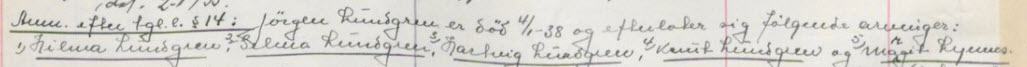 Anm. efter tgl. l. § 14: Jörgen Lundgren er død 4/1-38 og efterlader sig følgende arvinger:
1, Hilma Lundgren, 2, Selma Lundgren, 3, Hartvig Lundgren, 4, Knut Lundgren og 5,